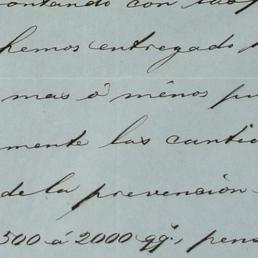 contando con las
hemos entregado
mas ó ménos pu
mente las cantid
de la prevención
500 á 2000 qq<sup>s</sup>, pens